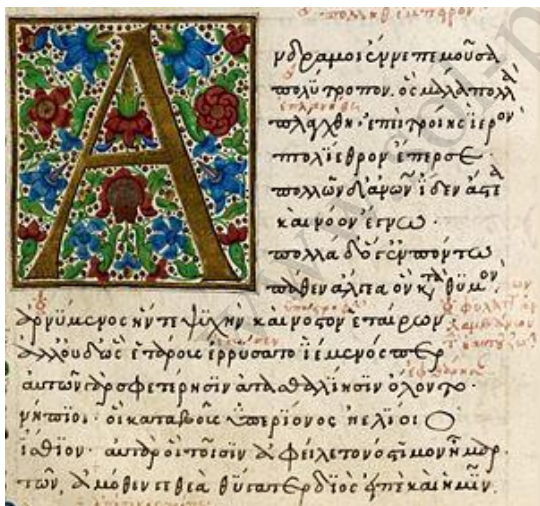 Α
νδραμοι ἔννεπε μοῦσα
πολύτροπον. ὃς μάλα πολλὰ
πλάγχθη· ἐπεὶ τροίης ἱερὸν
πτολίεθρον ἔπερσε·
πολλῶν δ' ἀνῶν ἴδεν ἄστεα
καὶ νόον ἔγνω.
πολλὰ δ' ὅγ' ἐν πόντω
πάθεν ἄλγεα ὃν κατὰ θυμόν·
ἀρνύμενος ἥν τε ψυχὴν καὶ νόστον ἑταίρων
ἀλλ' οὐδ' ὣς ἑτάρους ἐρρύσατο ἱέμενός περ
αὐτῶν γὰρ σφετέρησιν ἀτασθαλίησιν ὄλοντο·
νήπιοι· οἳ κατὰ βοῦς ὑπερίονος ἠελίοιο
ἤσθιον· αὐτὰρ ὁ τοῖσιν ἀφείλετο νόστιμον ἦμαρ.
τῶν ἁμόθεν γε θεὰ θύγατερ διὸς εἰπὲ καὶ ἡμῖν.